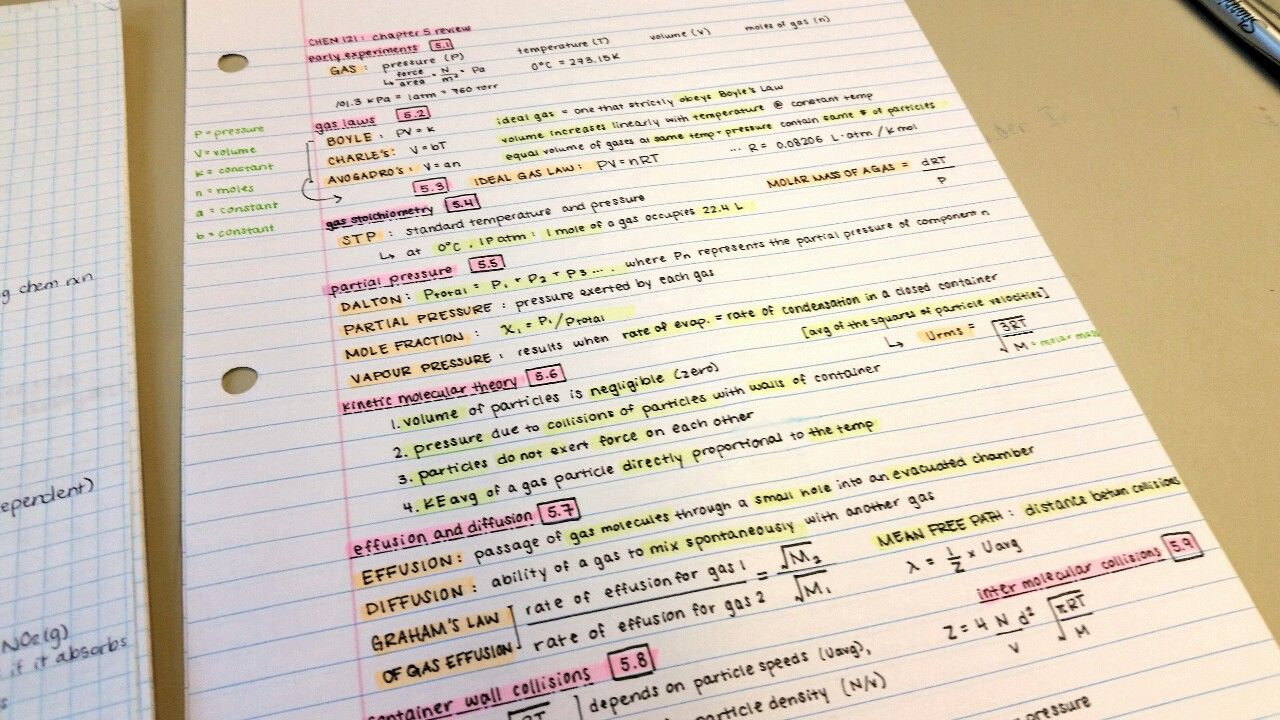 CHEN 121: chapter 5 review
early experiments 5.1
GAS: pressure (P) temperature (T) volume (V) moles of gas (n)
↳ force/area = N/m² = Pa 0°C = 273.15K
101.3 kPa = 1atm = 760 torr
gas laws 5.2
BOYLE: PV = K ideal gas = one that strictly obeys Boyle's Law
CHARLE'S: V=bT volume increases linearly with temperature @ constant temp
AVOGADRO'S: V=an equal volume of gases at same temp + pressure contain same # of particles
P = pressure
V = volume
K = constant
n = moles
a = constant
b = constant
5.3 IDEAL GAS LAW: PV=nRT ... R = 0.08206 L·atm/K mol
gas stoichiometry 5.4 MOLAR MASS OF A GAS = dRT/P
STP: standard temperature and pressure
↳ at 0°C, 1P atm: 1 mole of a gas occupies 22.4 L
partial pressure 5.5
DALTON: Ptotal = P₁ + P₂ + P₃ .... where Pn represents the partial pressure of component n
PARTIAL PRESSURE: pressure exerted by each gas
MOLE FRACTION: X₁ = P₁/Ptotal
VAPOUR PRESSURE: results when rate of evap. = rate of condensation in a closed container
kinetic molecular theory 5.6 [avg of the squares of particle velocities]
↳ Urms = √3RT/M = molar mass
1. volume of particles is negligible (zero)
2. pressure due to collisions of particles with walls of container
3. particles do not exert force on each other
4. KEavg of a gas particle directly proportional to the temp
effusion and diffusion 5.7
EFFUSION: passage of gas molecules through a small hole into an evacuated chamber
DIFFUSION: ability of a gas to mix spontaneously with another gas
GRAHAM'S LAW OF GAS EFFUSION] rate of effusion for gas 1 / rate of effusion for gas 2 = √M₂/√M₁
MEAN FREE PATH: distance betwn collisions
λ = 1/Z × Uavg
inter molecular collisions 5.9
Z = 4 N/V d² √πRT/M
container wall collisions 5.8
RT ] depends on particle speeds (Uavg),
particle density (N/V)
pressure
g chem rxn
ependent)
NO2(g)
if it absorbs
s
Sharpie